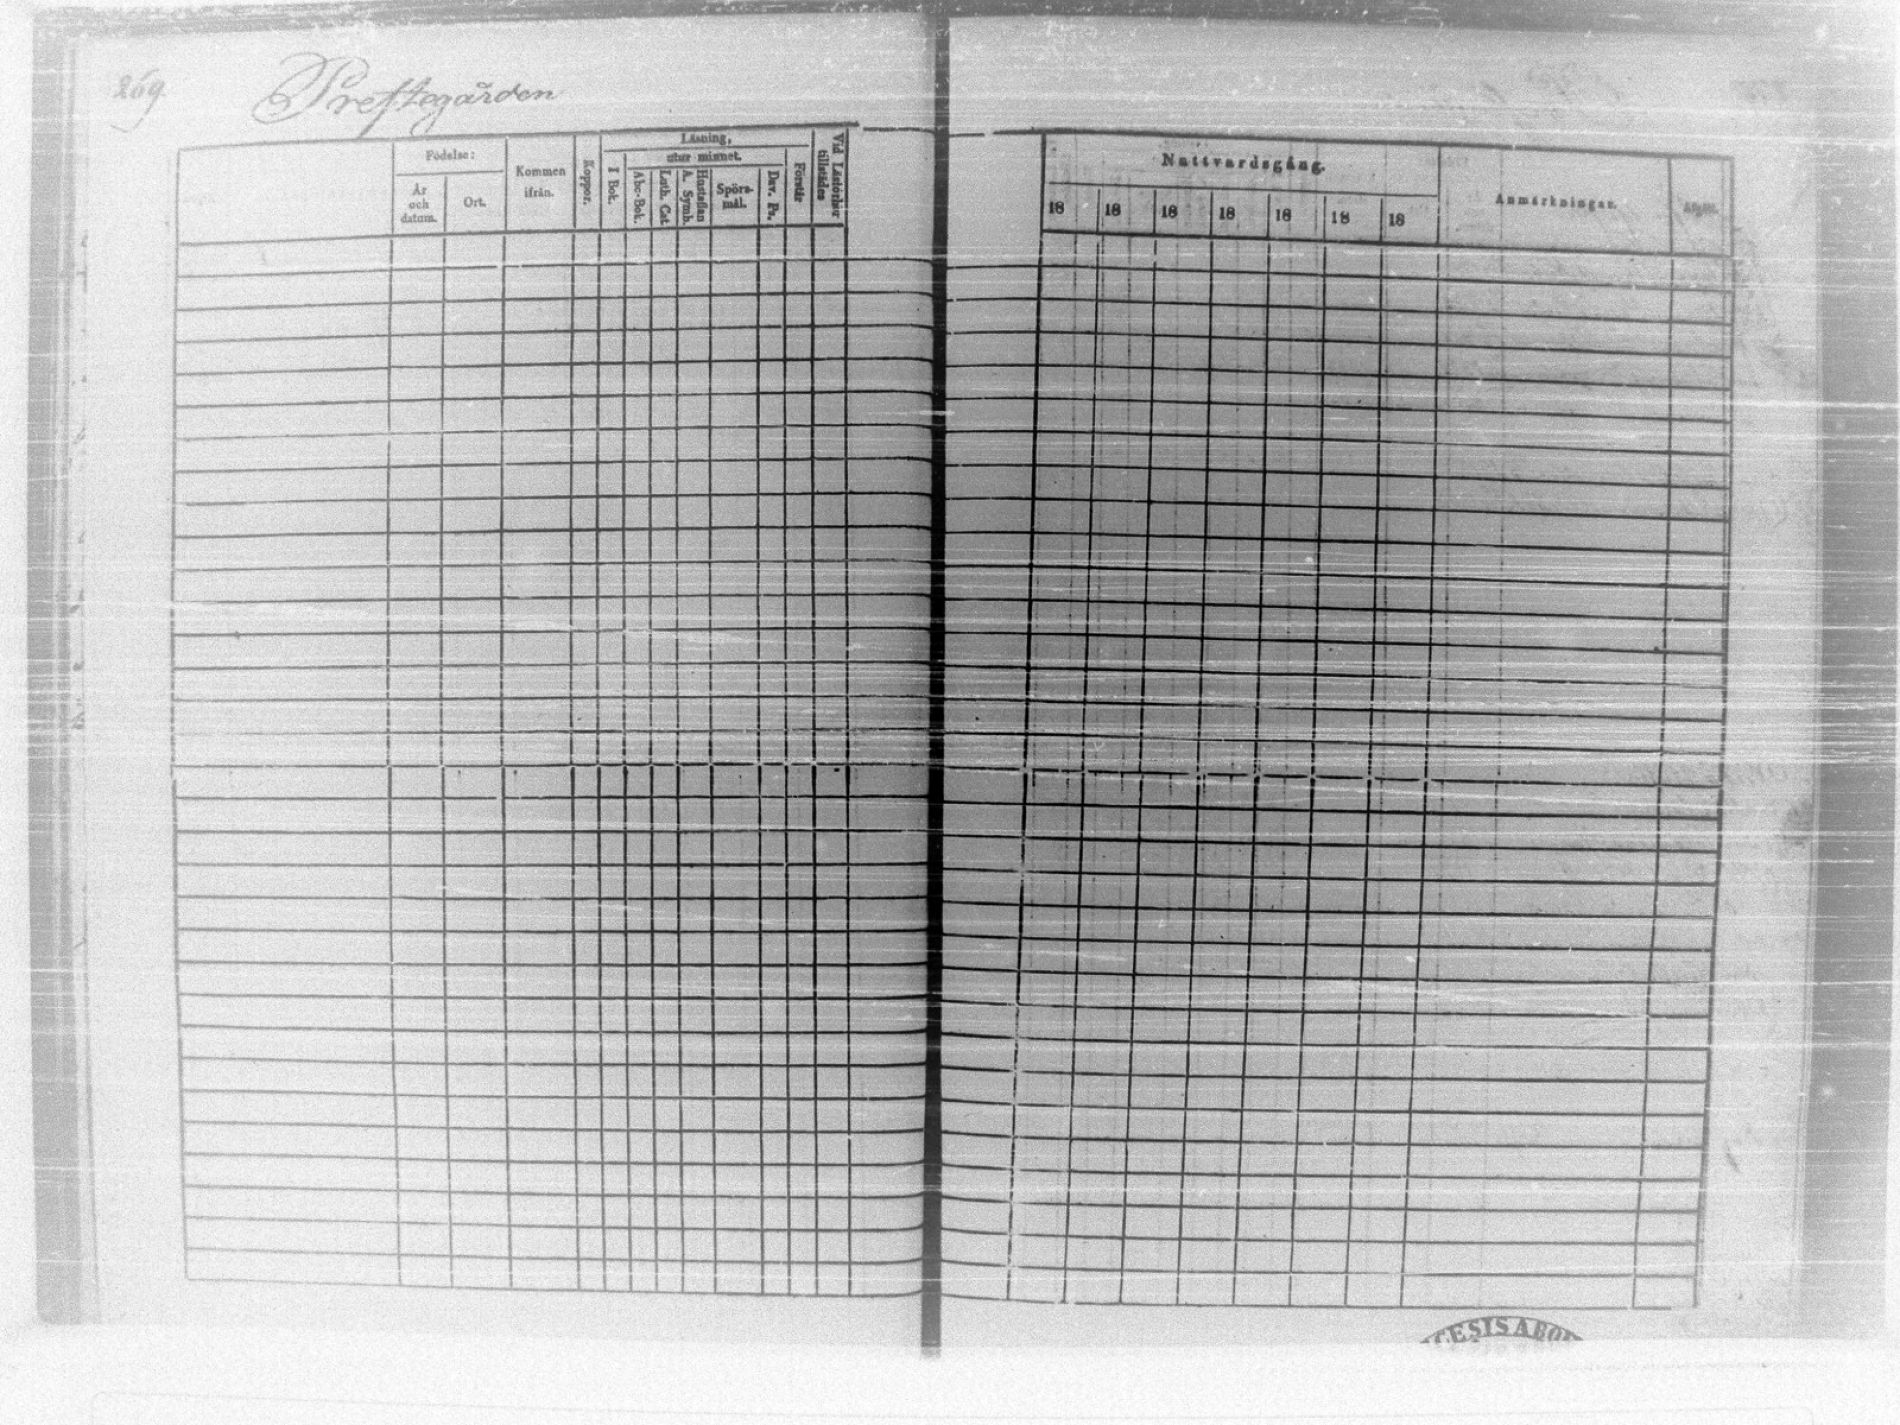 269.
Prestegården
Födelse:
År
och
datum.
Ort.
Kommen
ifrån.
Koppor.
Läsning,
I Bok.
utur minnet.
Abc-Bok.
Luth. Cat.
Hustaflan
A. Symb.
Spörs-
mål.
Dav. Ps.
Förstår
Vid Läsförhör
tillstädes
Nattvardsgång.
18 18 18 18 18 18 18
Anmärkningar.
Afgått.
CESIS ABO